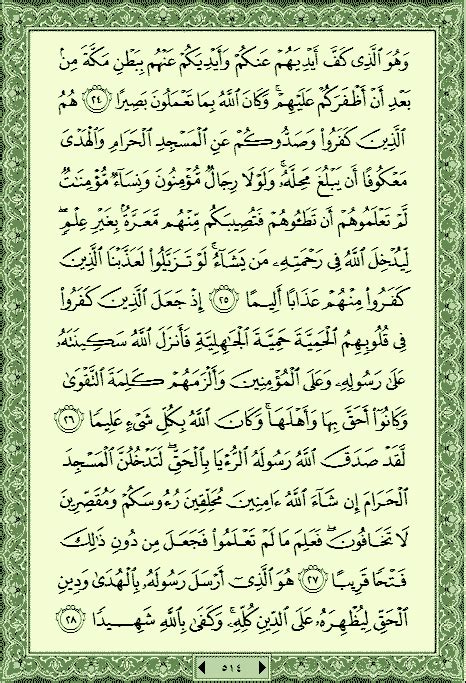 وَهُوَ ٱلَّذِى كَفَّ أَيْدِيَهُمْ عَنكُمْ وَأَيْدِيَكُمْ عَنْهُم بِبَطْنِ مَكَّةَ مِنۢ
بَعْدِ أَنْ أَظْفَرَكُمْ عَلَيْهِمْ ۚ وَكَانَ ٱللَّهُ بِمَا تَعْمَلُونَ بَصِيرًا ٢٤ هُمُ
ٱلَّذِينَ كَفَرُوا۟ وَصَدُّوكُمْ عَنِ ٱلْمَسْجِدِ ٱلْحَرَامِ وَٱلْهَدْىَ
مَعْكُوفًا أَن يَبْلُغَ مَحِلَّهُۥ ۚ وَلَوْلَا رِجَالٌ مُّؤْمِنُونَ وَنِسَآءٌ مُّؤْمِنَـٰتٌ
لَّمْ تَعْلَمُوهُمْ أَن تَطَـُٔوهُمْ فَتُصِيبَكُم مِّنْهُم مَّعَرَّةٌۢ بِغَيْرِ عِلْمٍ ۖ
لِّيُدْخِلَ ٱللَّهُ فِى رَحْمَتِهِۦ مَن يَشَآءُ ۚ لَوْ تَزَيَّلُوا۟ لَعَذَّبْنَا ٱلَّذِينَ
كَفَرُوا۟ مِنْهُمْ عَذَابًا أَلِيمًا ٢٥ إِذْ جَعَلَ ٱلَّذِينَ كَفَرُوا۟
فِى قُلُوبِهِمُ ٱلْحَمِيَّةَ حَمِيَّةَ ٱلْجَـٰهِلِيَّةِ فَأَنزَلَ ٱللَّهُ سَكِينَتَهُۥ
عَلَىٰ رَسُولِهِۦ وَعَلَى ٱلْمُؤْمِنِينَ وَأَلْزَمَهُمْ كَلِمَةَ ٱلتَّقْوَىٰ
وَكَانُوٓا۟ أَحَقَّ بِهَا وَأَهْلَهَا ۚ وَكَانَ ٱللَّهُ بِكُلِّ شَىْءٍ عَلِيمًا ٢٦
لَّقَدْ صَدَقَ ٱللَّهُ رَسُولَهُ ٱلرُّءْيَا بِٱلْحَقِّ ۖ لَتَدْخُلُنَّ ٱلْمَسْجِدَ
ٱلْحَرَامَ إِن شَآءَ ٱللَّهُ ءَامِنِينَ مُحَلِّقِينَ رُءُوسَكُمْ وَمُقَصِّرِينَ
لَا تَخَافُونَ ۖ فَعَلِمَ مَا لَمْ تَعْلَمُوا۟ فَجَعَلَ مِن دُونِ ذَٰلِكَ
فَتْحًا قَرِيبًا ٢٧ هُوَ ٱلَّذِىٓ أَرْسَلَ رَسُولَهُۥ بِٱلْهُدَىٰ وَدِينِ
ٱلْحَقِّ لِيُظْهِرَهُۥ عَلَى ٱلدِّينِ كُلِّهِۦ ۚ وَكَفَىٰ بِٱللَّهِ شَهِيدًا ٢٨
٥١٤